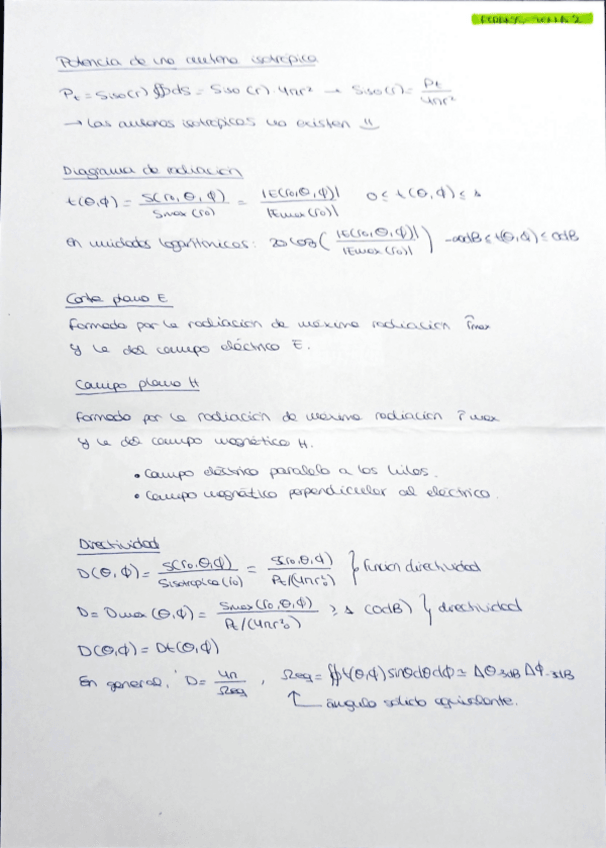 Potencia de una antena isotrópica
Pt = Siso(r) ∯ds = Siso(r) · 4πr² → Siso(r) = Pt / 4πr²
→ Las antenas isotrópicas no existen
Diagrama de radiación
t(θ,ϕ) = S(r₀,θ,ϕ) / Smax(r₀) = |E(r₀,θ,ϕ)| / |Emax(r₀)|   0 ≤ t(θ,ϕ) ≤ 1
en unidades logarítmicas: 20 log ( |E(r₀,θ,ϕ)| / |Emax(r₀)| )   -∞dB ≤ t(θ,ϕ) ≤ 0dB
Corte plano E
Formado por la radiación de máxima radiación r̂max
y la del campo eléctrico E.
Campo plano H
Formado por la radiación de máxima radiación r̂max
y la del campo magnético H.
• Campo eléctrico paralelo a los hilos.
• Campo magnético perpendicular al eléctrico.
Directividad
D(θ,ϕ) = S(r₀,θ,ϕ) / Sisotrópica(r₀) = S(r₀,θ,ϕ) / Pt/(4πr₀²) } función directividad
D = Dmax(θ,ϕ) = Smax(r₀,θ,ϕ) / Pt/(4πr₀²) ≥ 1 (0dB) } directividad
D(θ,ϕ) = Dt(θ,ϕ)
En general, D = 4π / Ωeq , Ωeq = ∯t(θ,ϕ) sinθdθdϕ ≃ Δθ-3dB Δϕ-3dB
ángulo sólido equivalente.